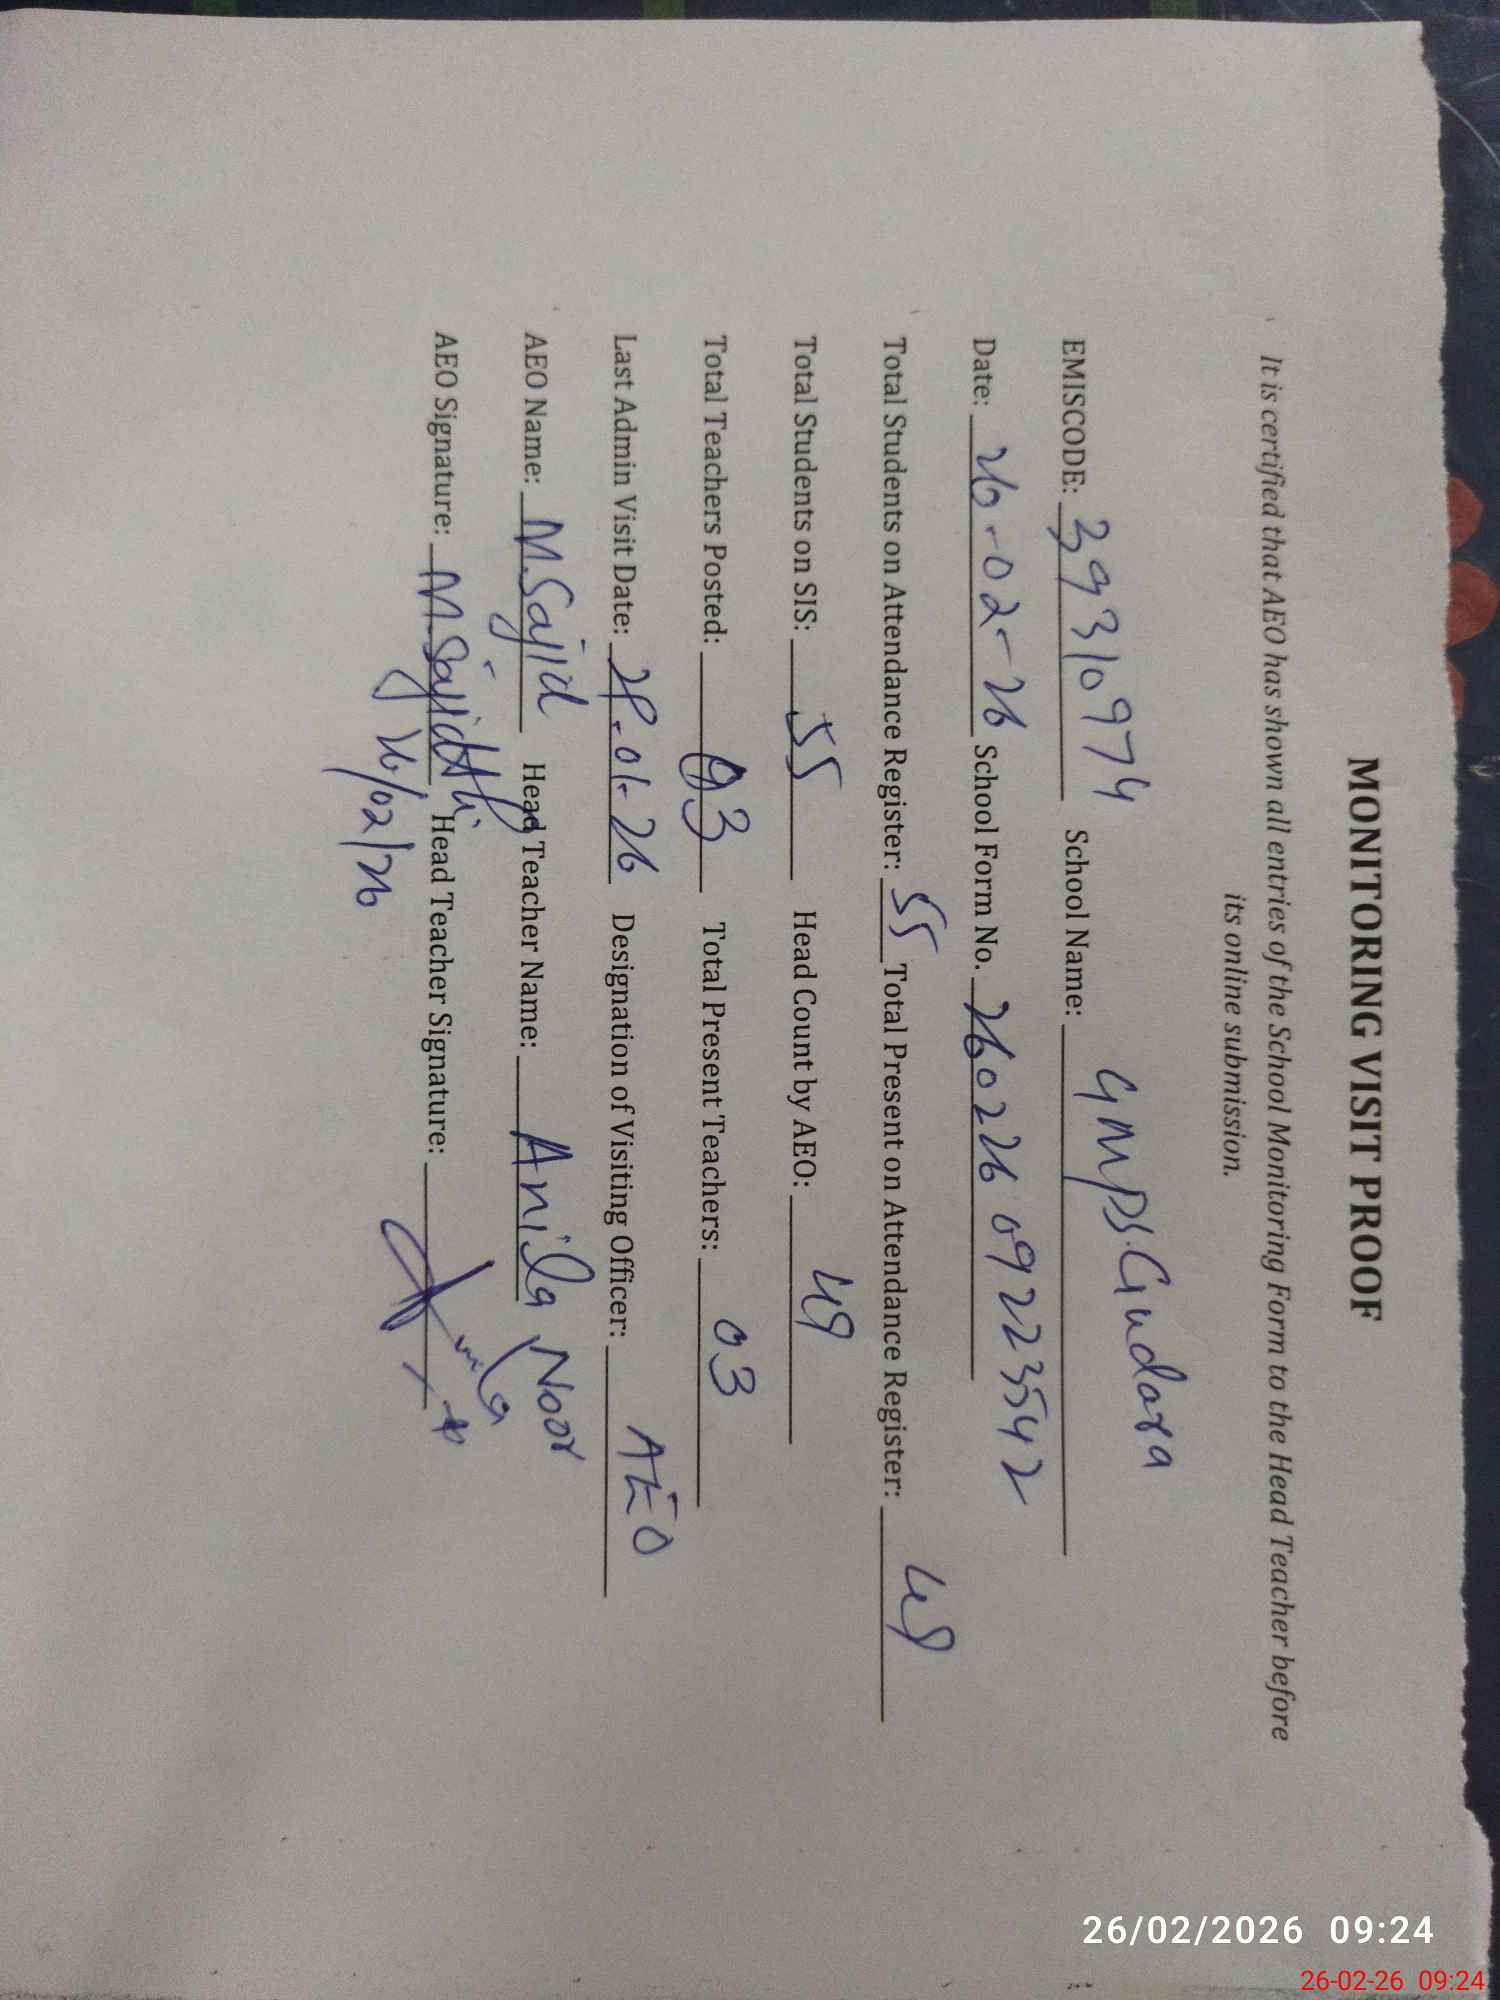 MONITORING VISIT PROOF
It is certified that AEO has shown all entries of the School Monitoring Form to the Head Teacher before
its online submission.
EMISCODE: 39310974 School Name: GMPS. Gudara
Date: 26-02-26 School Form No. 260226 09223542
Total Students on Attendance Register: 55 Total Present on Attendance Register: 49
Total Students on SIS: 55 Head Count by AEO: 49
Total Teachers Posted: 03 Total Present Teachers: 03
Last Admin Visit Date: 28.01-26 Designation of Visiting Officer: AEO
AEO Name: M.Sajid Head Teacher Name: Anila Noor
AEO Signature: M.Sajid Head Teacher Signature:
26/02/26
26/02/2026 09:24
26-02-26 09:24